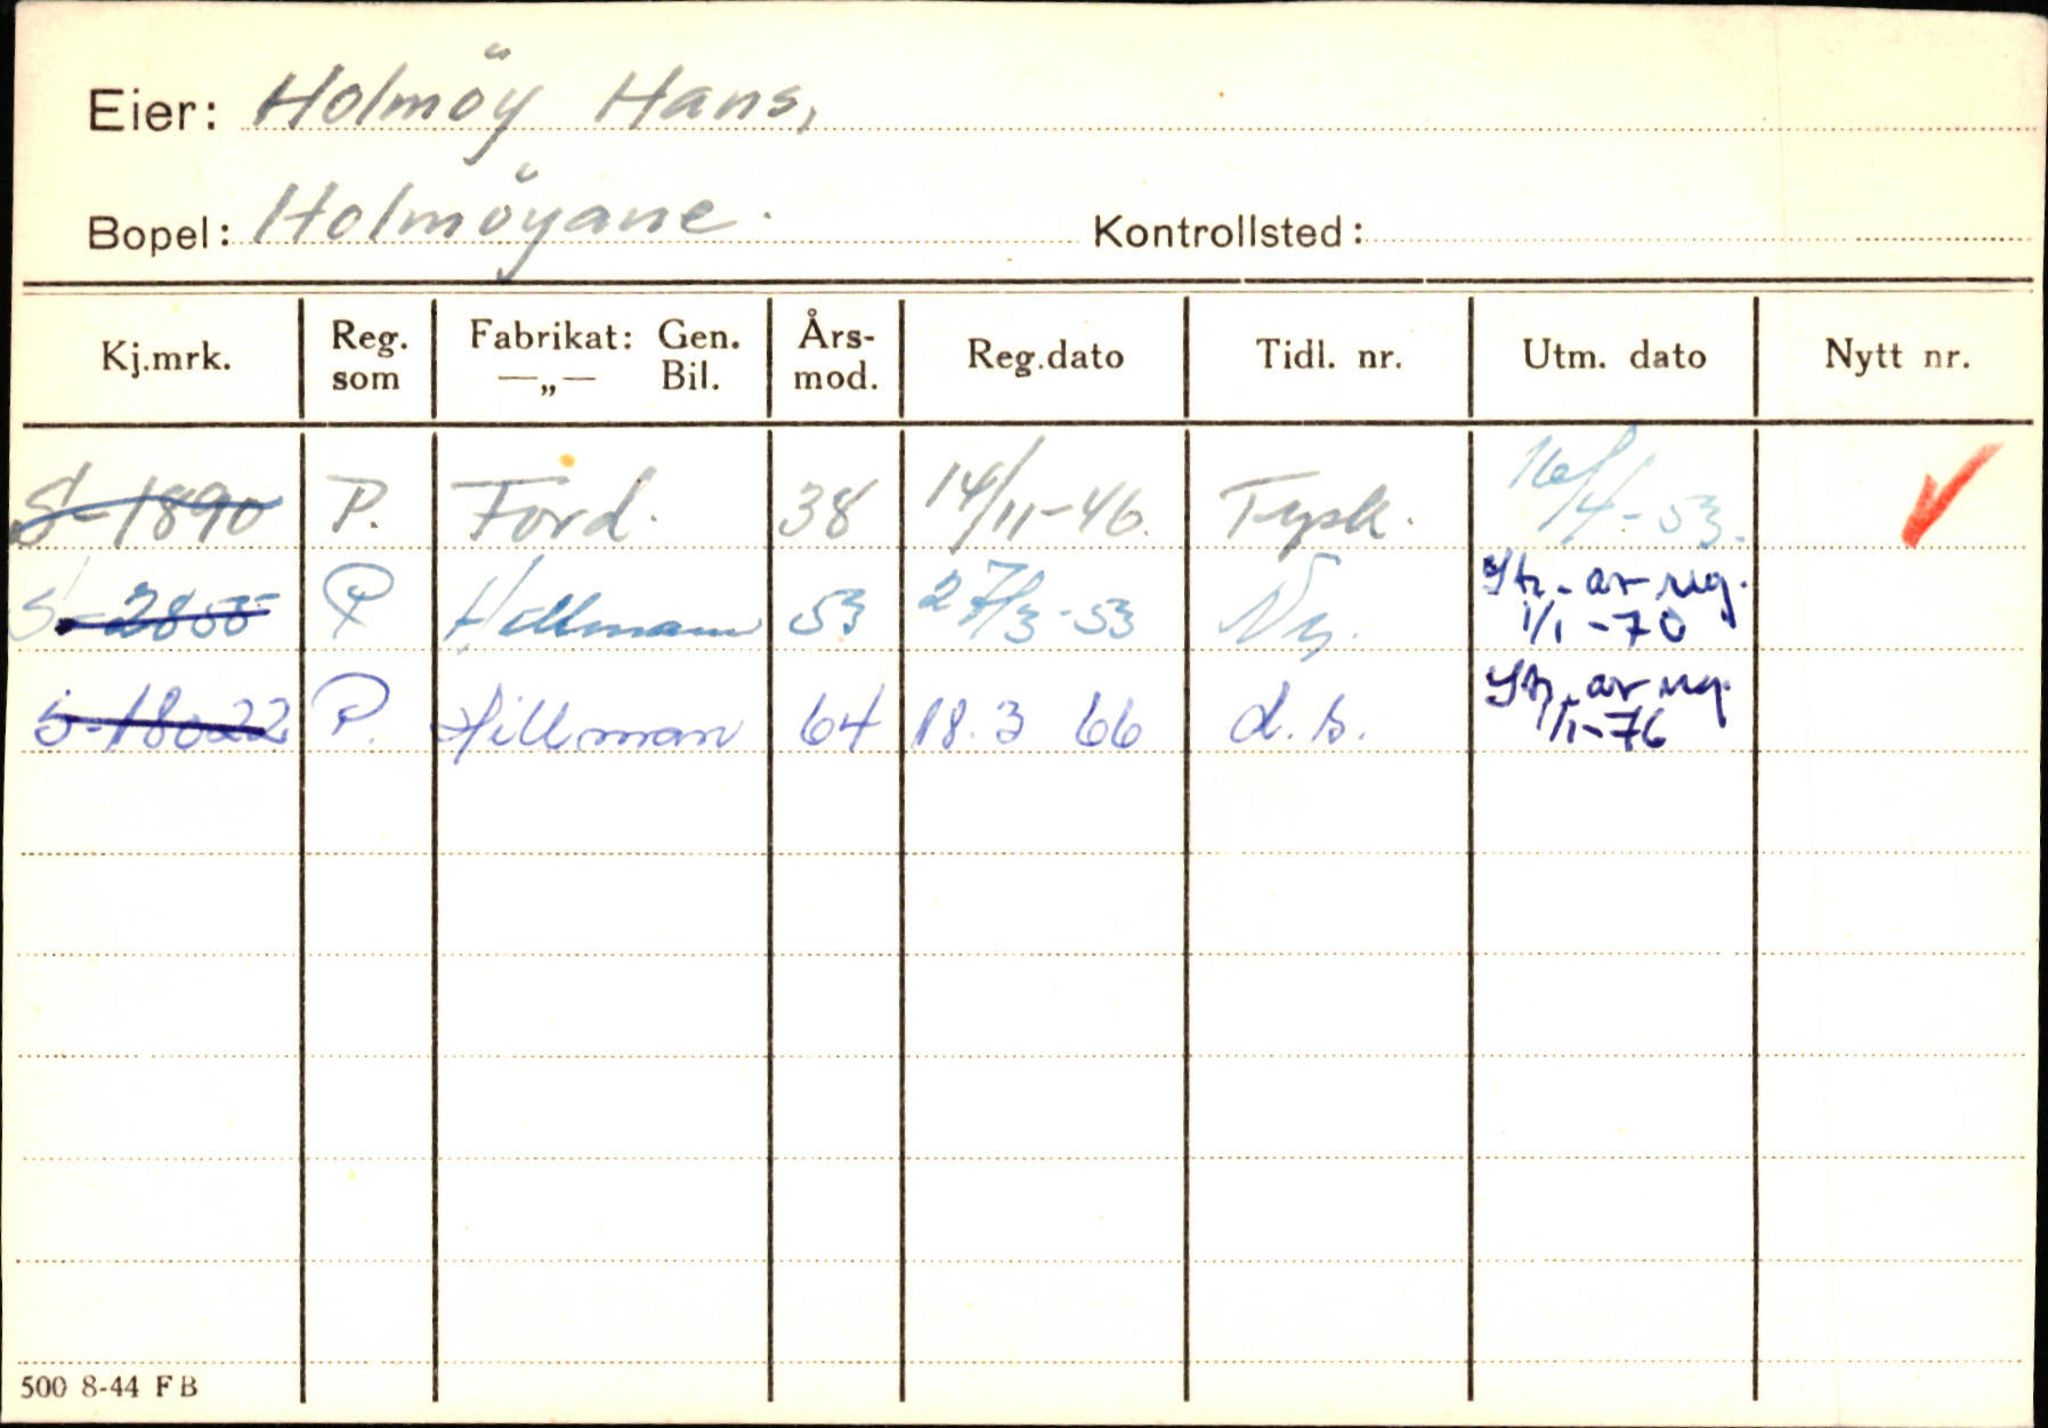 Eier: Holmöy Hans,
Bopel: Holmöyane. Kontrollsted:
Kj.mrk. Reg. som Fabrikat: Gen. —„— Bil. Års-mod. Reg.dato Tidl. nr. Utm. dato Nytt nr.
S-1890 P. Ford. 38 14/11-46. Tysk. 16/4-53.
S-2855 P Hillmann 53 27/3-53 Ny. Str. av reg. 1/1-70
S-18022 P. Hillman 64 18.3 66 d.s. Str. av reg. 1/1-76
500 8-44 FB